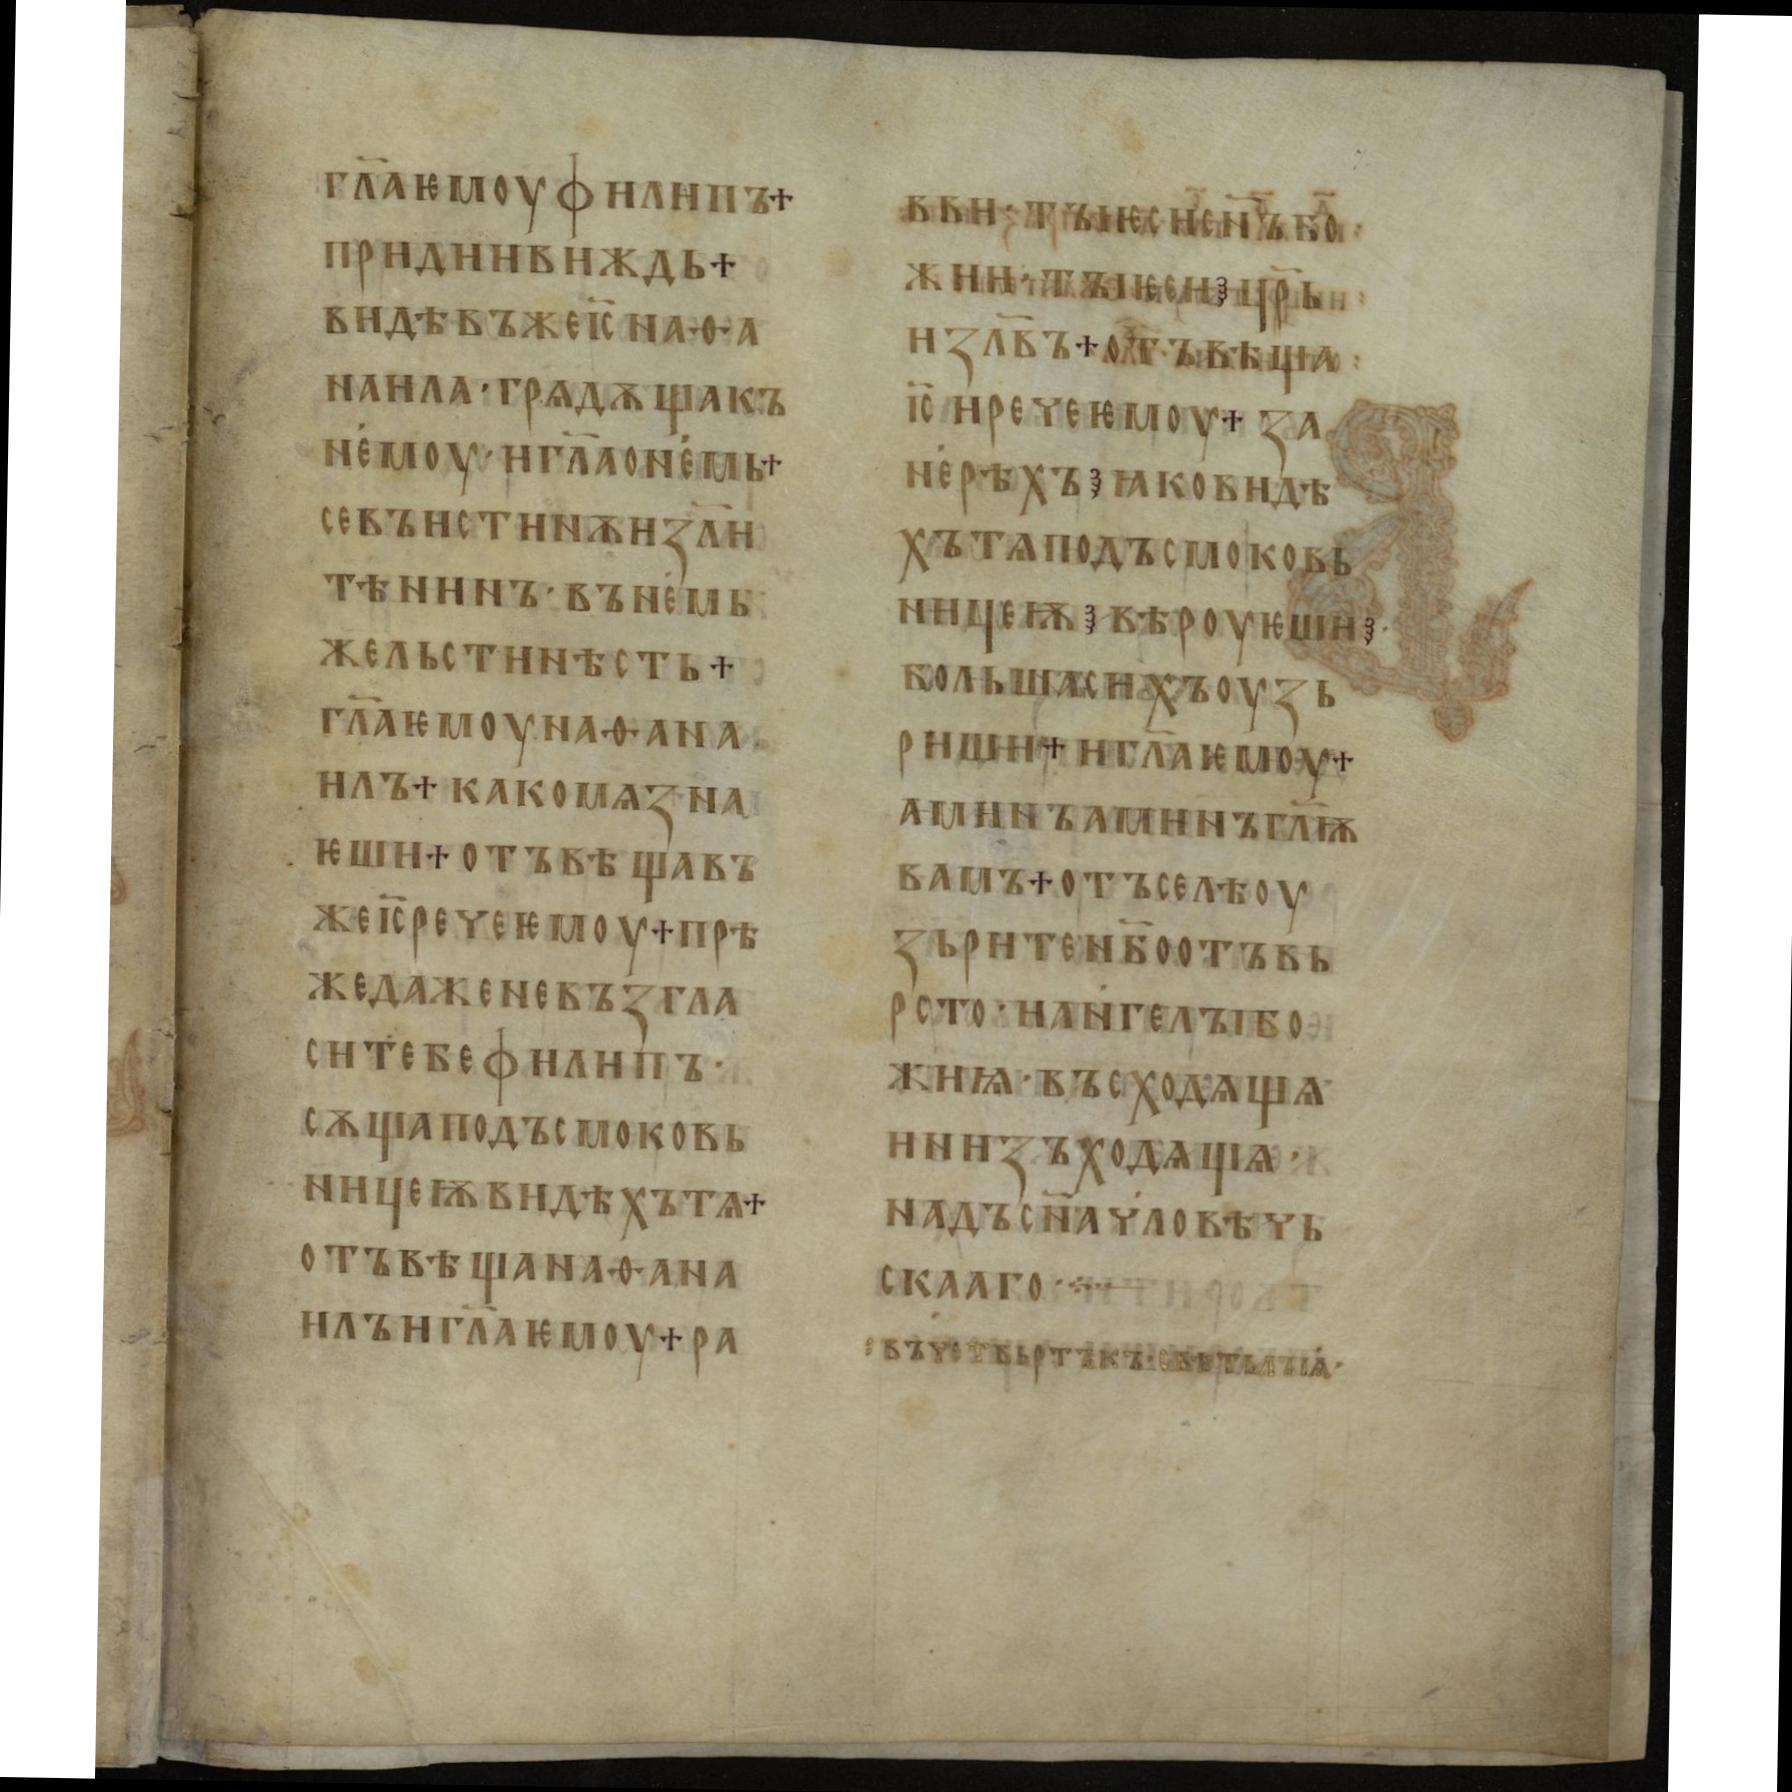 гл҃аѥмоуфилипъ+
придиивиждь+
видѣвъжеіс҃наѳа
наила·грѧдѫщакъ
немоу·игл҃аонемь+
севъистинѫизл҃и
тѣнинъ·въиемь
жельстинѣсть+
гл҃аѥмоунаѳана
илъ+какомѧзна
ѥши+отъвѣщавъ
жеіс҃речеѥмоу+прѣ
ждедаженевъзгла
ситебефилипъ·
сѫщаподъсмоковь
ницеѭвидѣхътѧ+
отъвѣщанаѳана
илъигл҃аѥмоу+ра
вви·тыѥсисн҃ъбо
жии·тыѥси⁏цр҃ь
изл҃въ+отъвѣща
іс҃иречеѥмоу+за
нерѣхъ⁏ꙗковидѣ
хътѧподъсмоковь
ницеѭ⁏вѣроуѥши⁏
большасихъоузь
риши+игл҃аѥмоу+
аминъаминъгл҃ѭ
вамъ+отъселѣоу
зьритен҃боотъвь
рсто·иан҃гелъıбо
жиѩ·въсходѧщѧ
инизъходѧщѧ·
надъсн҃ачловѣчь
скааго·
:въчетвьртъкъ·свѣтьлъıѩ·